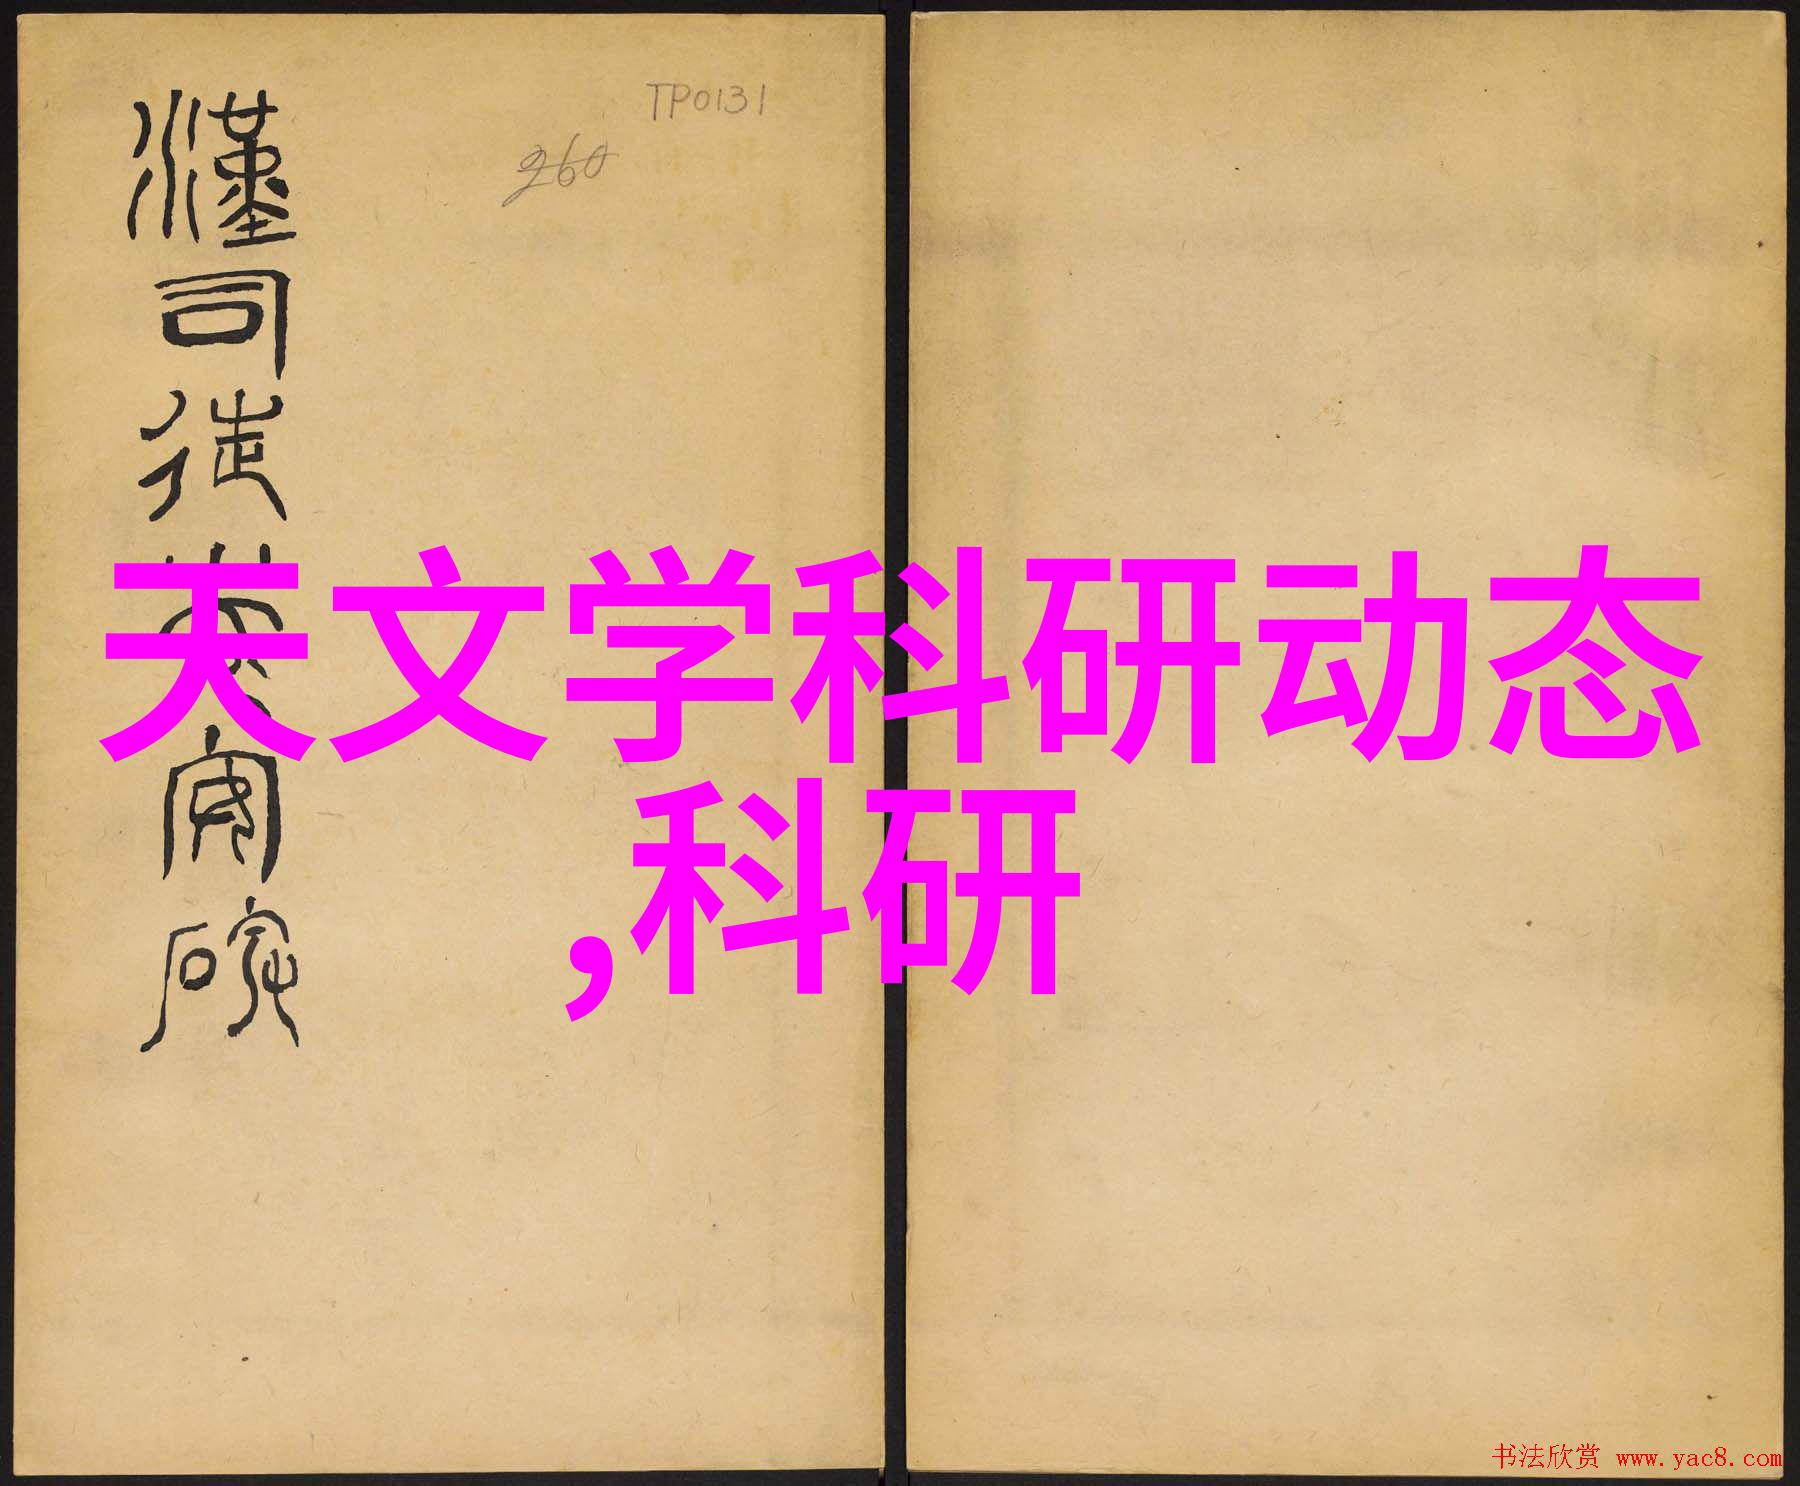 漢司徒袁安碑
TP0131
260
天文学科研动态
,科研
书法欣赏 www.yac8.com